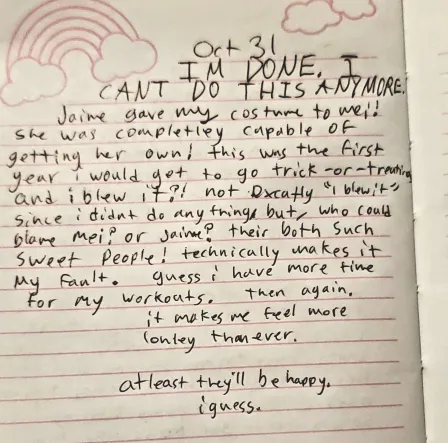 Oct 31
I'M DONE. I
CANT DO THIS ANYMORE.
Jaime gave my costume to mei!!
She was completley capable of
getting her own! this was the first
year i would get to go trick-or-treating
and i blew it?! not Excatly "i blew it"
since i didnt do anything, but, who could
blame mei? or Jaime? their both such
sweet people! technically makes it
my fault. guess i have more time
for my workouts. then again,
it makes me feel more
lonley than ever.
atleast they'll be happy.
i guess.